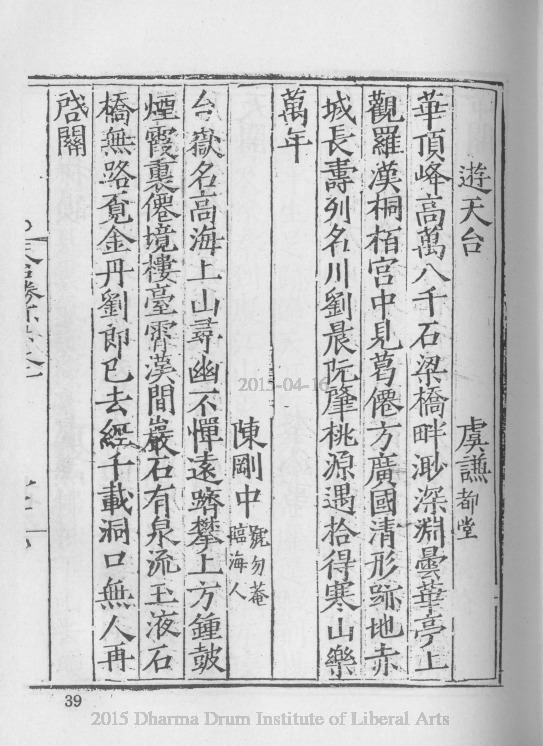 遊天台 虞謙都堂
華頂峰高萬八千石梁橋畔渺深淵曇華亭上
觀羅漢桐栢宮中見葛僊方廣國清形跡地赤
城長壽列名川劉晨阮肇桃源遇拾得寒山樂
萬年
陳剛中號勿菴臨海人
台嶽名高海上山尋幽不憚遠躋攀上方鍾鼓
煙霞裏僊境樓臺霄漢間巖石有泉流玉液石
橋無路覓金丹劉郎已去經千載洞口無人再
啓關
2015-04-16
39
2015 Dharma Drum Institute of Liberal Arts